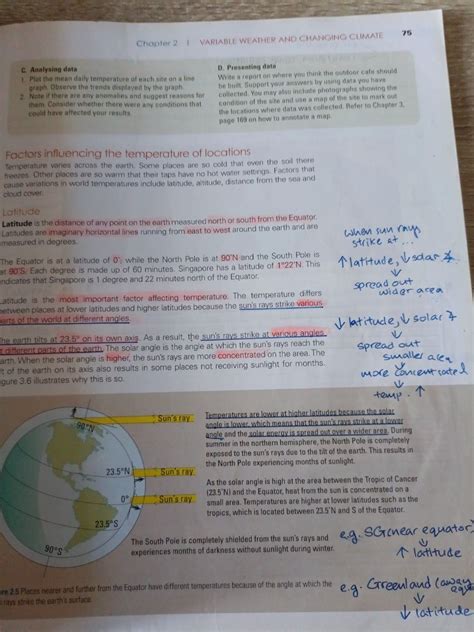 Chapter 2 | VARIABLE WEATHER AND CHANGING CLIMATE 75
C. Analysing data
1. Plot the mean daily temperature of each site on a line
graph. Observe the trends displayed by the graph.
2. Note if there are any anomalies and suggest reasons for
them. Consider whether there were any conditions that
could have affected your results.
D. Presenting data
Write a report on where you think the outdoor café should
be built. Support your answers by using data you have
collected. You may also include photographs showing the
condition of the site and use a map of the site to mark out
the locations where data was collected. Refer to Chapter 3,
page 169 on how to annotate a map.
Factors influencing the temperature of locations
Temperature varies across the earth. Some places are so cold that even the soil there
freezes. Other places are so warm that their taps have no hot water settings. Factors that
cause variations in world temperatures include latitude, altitude, distance from the sea and
cloud cover.
Latitude
Latitude is the distance of any point on the earth measured north or south from the Equator.
Latitudes are imaginary horizontal lines running from east to west around the earth and are
measured in degrees.
The Equator is at a latitude of 0°, while the North Pole is at 90°N and the South Pole is
at 90°S. Each degree is made up of 60 minutes. Singapore has a latitude of 1°22'N. This
indicates that Singapore is 1 degree and 22 minutes north of the Equator.
Latitude is the most important factor affecting temperature. The temperature differs
between places at lower latitudes and higher latitudes because the sun's rays strike various
parts of the world at different angles.
The earth tilts at 23.5° on its own axis. As a result, the sun's rays strike at various angles
different parts of the earth. The solar angle is the angle at which the sun's rays reach the
earth. When the solar angle is higher, the sun's rays are more concentrated on the area. The
tilt of the earth on its axis also results in some places not receiving sunlight for months.
Figure 3.6 illustrates why this is so.
when sun rays
strike at ...
↑ latitude, ↓ solar ∠
↓
spread out
wider area
↓ latitude, ↓ solar ∠
↓
spread out
smaller area
↓
more concentrated
↓
temp. ↑
90°N
Sun's ray
23.5°N
Sun's ray
0°
Sun's ray
23.5°S
90°S
Temperatures are lower at higher latitudes because the solar
angle is lower, which means that the sun's rays strike at a lower
angle and the solar energy is spread out over a wider area. During
summer in the northern hemisphere, the North Pole is completely
exposed to the sun's rays due to the tilt of the earth. This results in
the North Pole experiencing months of sunlight.
As the solar angle is high at the area between the Tropic of Cancer
(23.5°N) and the Equator, heat from the sun is concentrated on a
small area. Temperatures are higher at lower latitudes such as the
tropics, which is located between 23.5°N and S of the Equator.
The South Pole is completely shielded from the sun's rays and
experiences months of darkness without sunlight during winter.
e.g. SG (near equator)
↑ latitude
e.g. Greenland (away
↓ latitude
2.5 Places nearer and further from the Equator have different temperatures because of the angle at which the
rays strike the earth's surface.